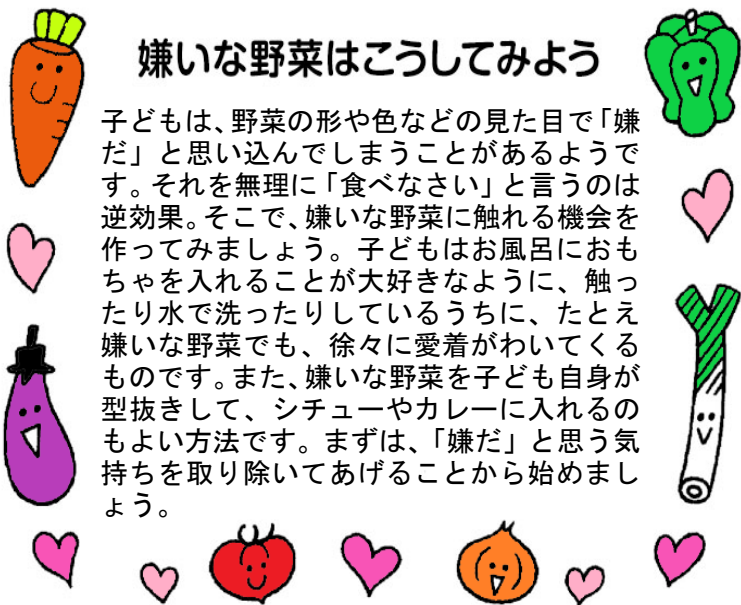 嫌いな野菜はこうしてみよう
子どもは、野菜の形や色などの見た目で「嫌
だ」と思い込んでしまうことがあるようで
す。それを無理に「食べなさい」と言うのは
逆効果。そこで、嫌いな野菜に触れる機会を
作ってみましょう。子どもはお風呂におも
ちゃを入れることが大好きなように、触っ
たり水で洗ったりしているうちに、たとえ
嫌いな野菜でも、徐々に愛着がわいてくる
ものです。また、嫌いな野菜を子ども自身が
型抜きして、シチューやカレーに入れるの
もよい方法です。まずは、「嫌だ」と思う気
持ちを取り除いてあげることから始めまし
ょう。